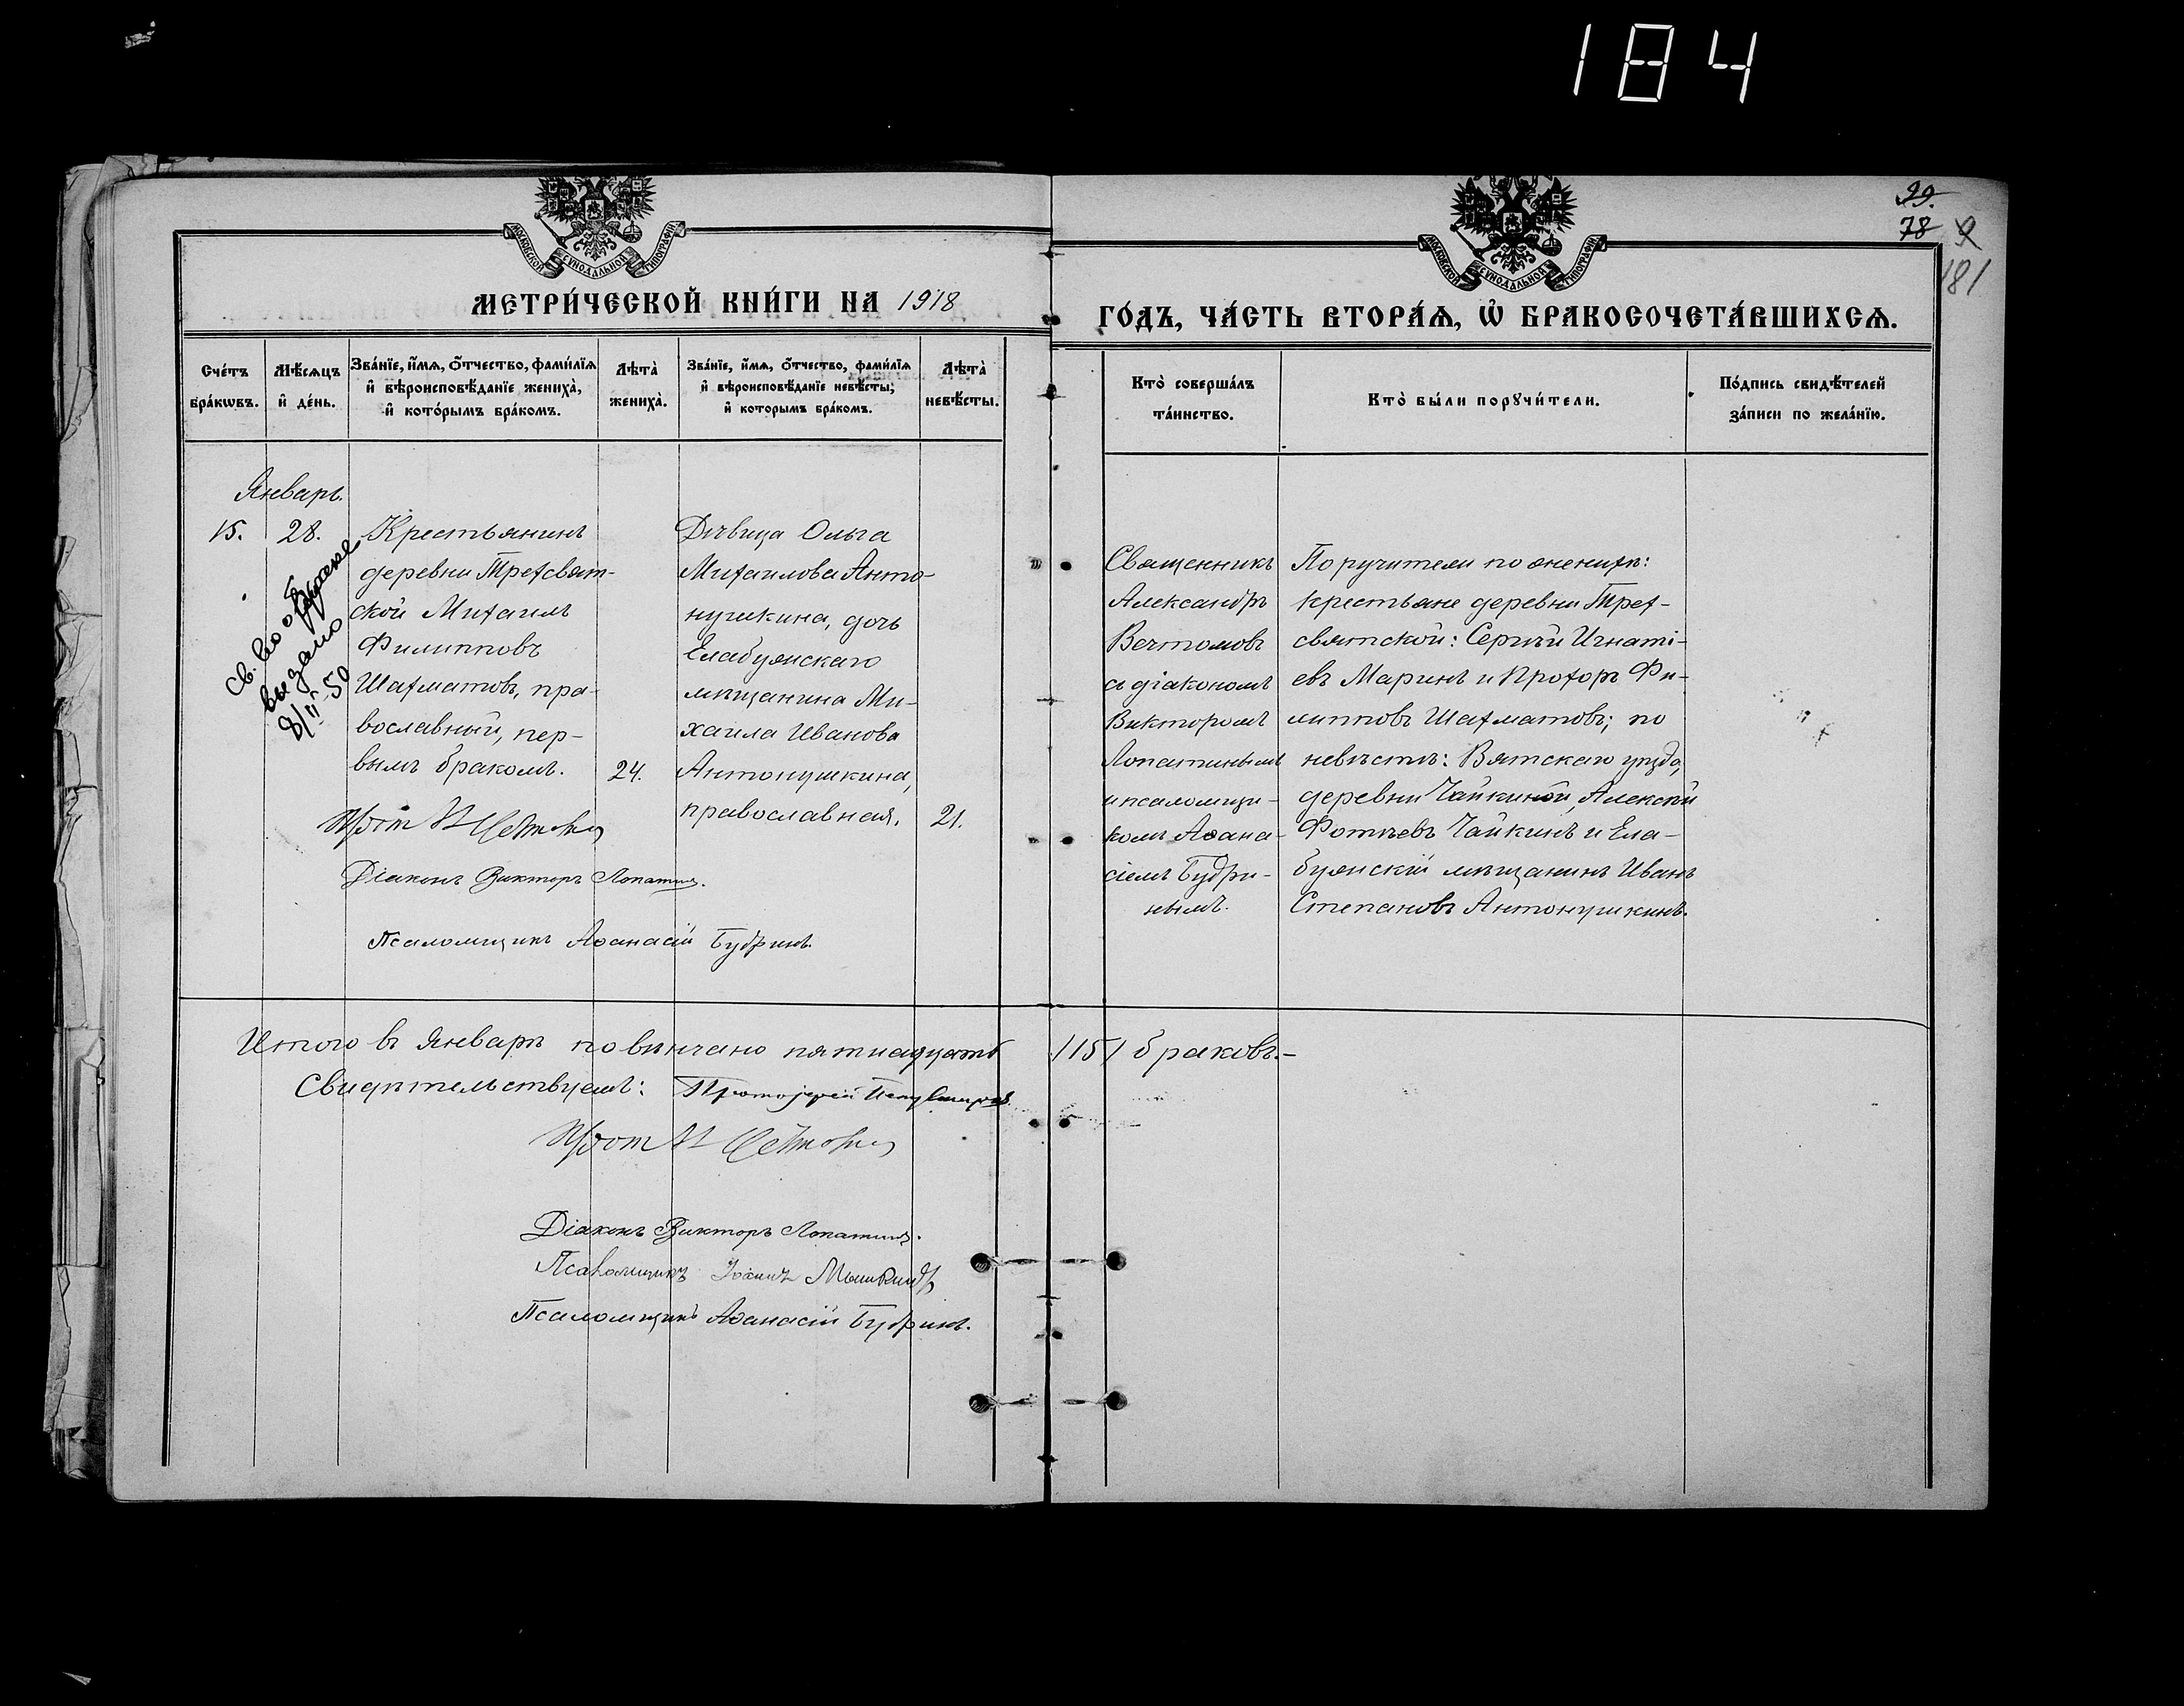 184
99.
78
181
МОСКОВСКОЙ СѴНОДАЛЬНОЙ ТИПОГРАФІИ
МОСКОВСКОЙ СѴНОДАЛЬНОЙ ТИПОГРАФІИ
МЕТРИ́ЧЕСКОЙ КНИ́ГИ НА 1918
ГО́ДЪ, ЧА́СТЬ ВТОРА́Ѧ, Ѽ БРАКОСОЧЕТА́ВШИХСѦ.
Сче́тъ
бра́кѡвъ.
Мѣ́сѧцъ
и҆ де́нь.
Зва́нїе, и҆́мѧ, ѻ҆́тчество, фами́лїѧ
и҆ вѣроисповѣ́данїе жениха̀,
и҆ кото́рымъ бра́комъ.
Лѣта̀
жениха̀.
Зва́нїе, и҆́мѧ, ѻ҆́тчество, фами́лїѧ
и҆ вѣроисповѣ́данїе невѣ́сты,
и҆ которымъ бра́комъ.
Лѣта̀
невѣ́сты.
Кто̀ соверша́лъ
та́инство.
Кто̀ бы́ли порꙋчи́тели.
По́дпись свидѣ́телей
за́писи по жела́нїю.
Январь.
15.
28.
Св. во о браке
выдано
8/II-50
Крестьянинъ
деревни Трехсвят-
ской Михаилъ
Филипповъ
Шахматовъ, пра-
вославный, пер-
вымъ бракомъ.
24.
Дѣвица Ольга
Михаилова Анто-
нушкина, дочь
Елабужскаго
мѣщанина Ми-
хаила Иванова
Антонушкина,
православная.
21.
Священникъ
Александръ
Вечтомовъ
съ діакономъ
Викторомъ
Лопатинымъ
и псаломщи-
комъ Аѳана-
сіемъ Будри-
нымъ.
Поручители по женихѣ:
крестьяне деревни Трех-
святской: Сергѣй Игнаті-
евъ Маринъ и Прохоръ Фи-
липповъ Шахматовъ; по
невѣстѣ: Вятскаго уѣзда,
деревни Чайкиной Алексѣй
Фотѣевъ Чайкинъ и Ела-
бужскій мѣщанинъ Иванъ
Степановъ Антонушкинъ.
Прот
Діаконъ Викторъ Лопатинъ.
Псаломщикъ Аѳанасій Будринъ.
Итого въ Январѣ повѣнчано пятнадцать /15/ браковъ.-
Свидѣтельствуемъ: Протоіерей
Прот
Діаконъ Викторъ Лопатинъ.
Псаломщикъ Іоаннъ Мышкинъ
Псаломщикъ Аѳанасій Будринъ.